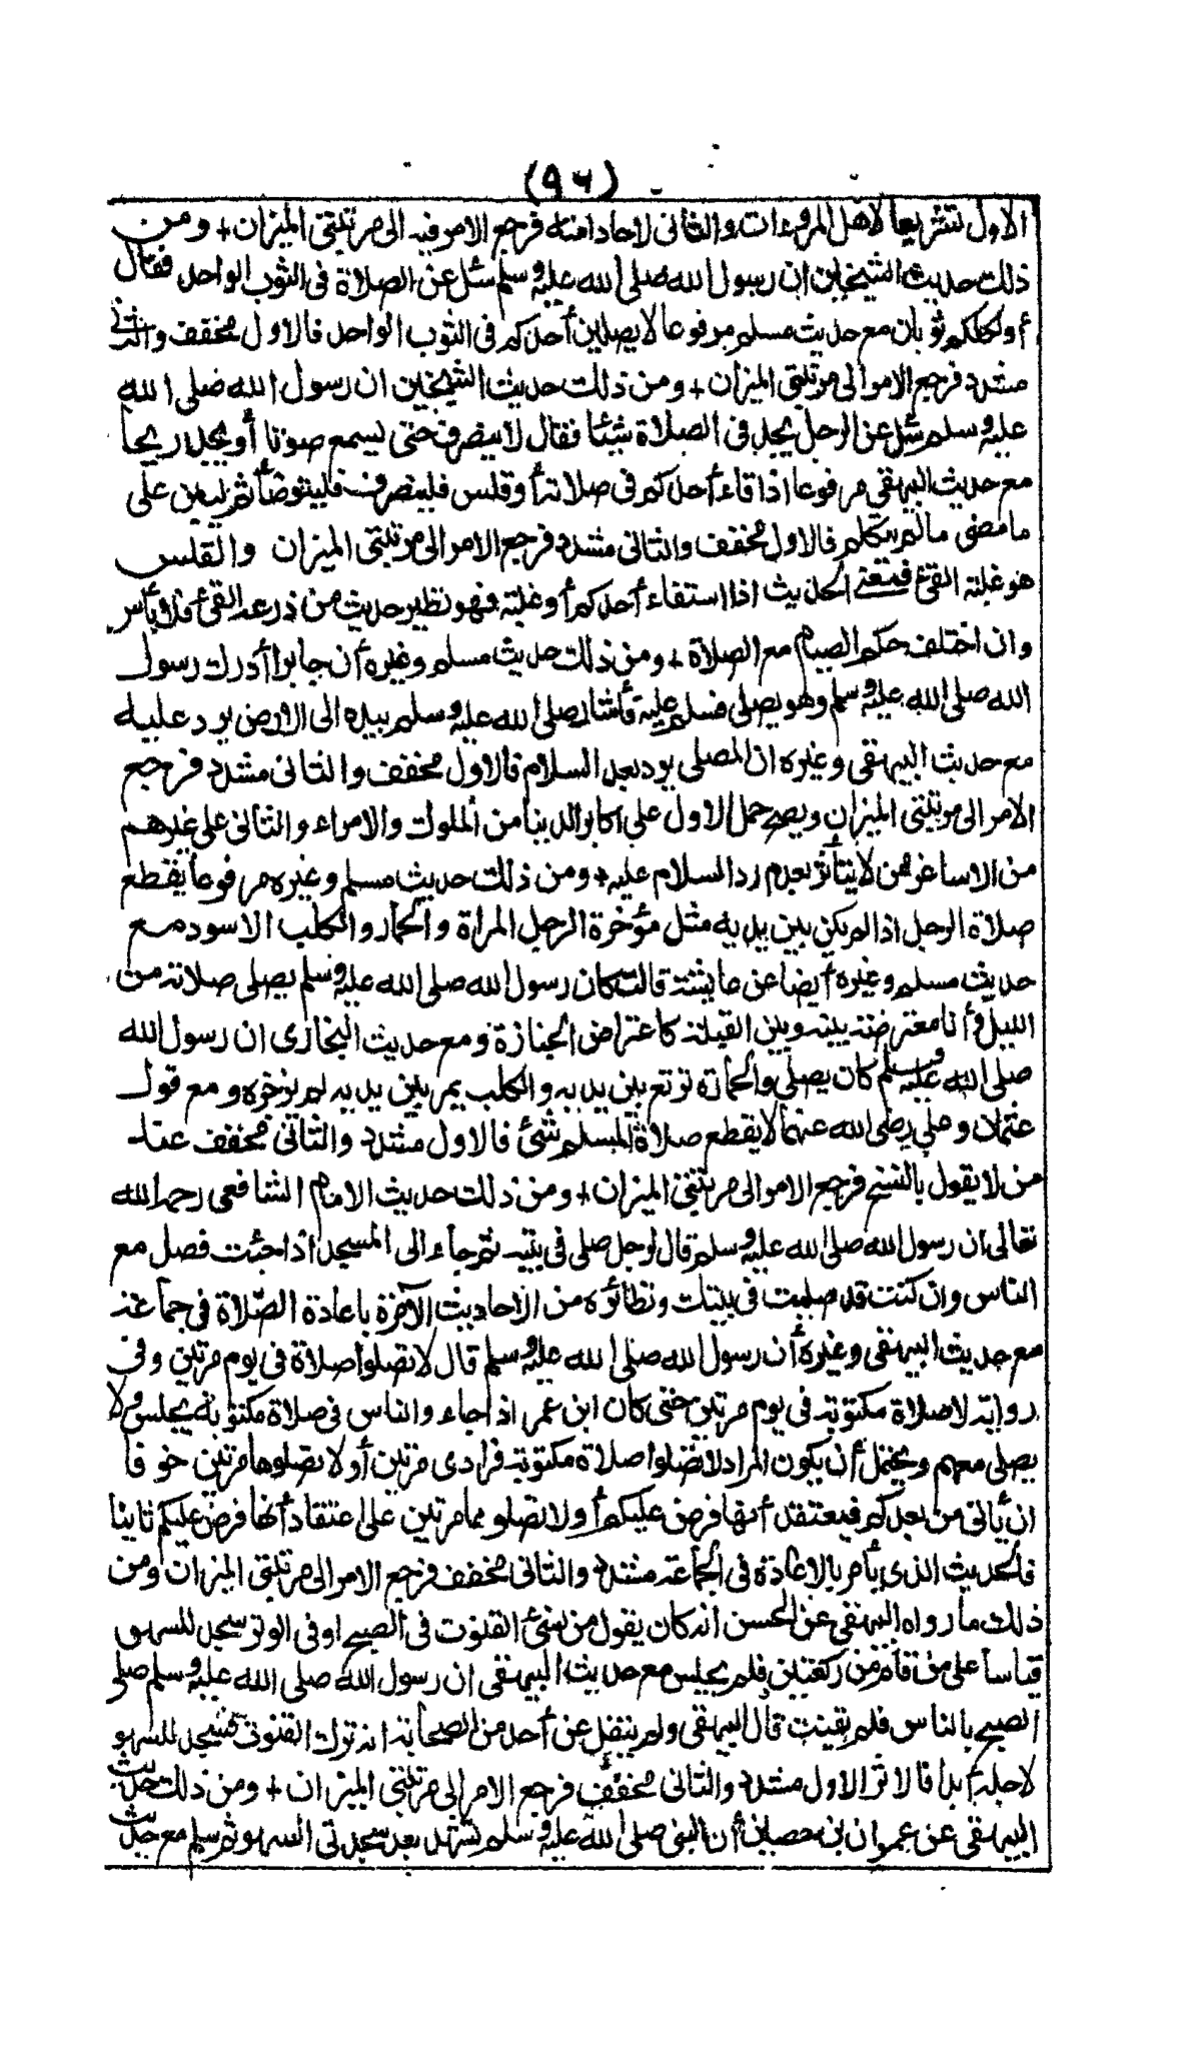 (٩٦)
الاول تشريعا لاهل المروءات والثانى لآحاد امته فرجع الامر فيه الى مرتبتى الميزان + ومن
ذلك حديث الشيخين ان رسول الله صلى الله عليه وسلم سئل عن الصلاة فى الثوب الواحد فقال
أولكلكم ثوبان مع حديث مسلم مرفوعا لا يصلين أحدكم فى الثوب الواحد فالاول مخفف والثانى
مشدد فرجع الامر الى مرتبتى الميزان + ومن ذلك حديث الشيخين ان رسول الله صلى الله
عليه وسلم سئل عن الرجل يجد فى الصلاة شيئا فقال لا ينصرف حتى يسمع صوتا أو يجد ريحا
مع حديث البيهقى مرفوعا اذا قاء أحدكم فى صلاته أو قلس فلينصرف فليتوضأ ثم ليبن على
ما مضى مالم يتكلم فالاول مخفف والثانى مشدد فرجع الامر الى مرتبتى الميزان والقلس
هو غلبته القئ فمعنى الحديث اذا استقاء أحدكم أو غلبته فهو نظير حديث من ذرعه القئ فلا بأس
وان اختلف حكم الصيام مع الصلاة + ومن ذلك حديث مسلم وغيره أن جابرا أدرك رسول
الله صلى الله عليه وسلم وهو يصلى فسلم عليه فأشار صلى الله عليه وسلم بيده الى الارض يرد عليه
مع حديث البيهقى وغيره ان المصلى يرد بعد السلام فالاول مخفف والثانى مشدد فرجع
الامر الى مرتبتى الميزان ويصح حمل الاول على اكابر الدنيا من الملوك والامراء والثانى على غيرهم
من الاساغر ممن لا يتأثر بعدم رد السلام عليه + ومن ذلك حديث مسلم وغيره مرفوعا يقطع
صلاة الرجل اذا لم يكن بين يديه مثل مؤخرة الرحل المراة والحمار والكلب الاسود مع
حديث مسلم وغيره أيضا عن عايشة قالت كان رسول الله صلى الله عليه وسلم يصلى صلاته من
الليل وأنا معترضة بينه وبين القبلة كاعتراض الجنازة ومع حديث البخارى ان رسول الله
صلى الله عليه وسلم كان يصلى والحمارة ترتع بين يديه والكلب يمر بين يديه لم يؤخره ومع قول
عثمان وعلى رضى الله عنهما لا يقطع صلاة المسلم شئ فالاول مشدد والثانى مخفف عند
من لا يقول بالنسخ فرجع الامر الى مرتبتى الميزان + ومن ذلك حديث الامام الشافعى رحمه الله
تعالى ان رسول الله صلى الله عليه وسلم قال لرجل صلى فى بيته ثم جاء الى المسجد اذا جئت فصل مع
الناس وان كنت قد صليت فى بيتك ونظائره من الاحاديث الآمرة باعادة الصلاة فى جماعة
مع حديث البيهقى وغيره أن رسول الله صلى الله عليه وسلم قال لا تصلوا صلاة فى يوم مرتين وفى
رواية لا صلاة مكتوبة فى يوم مرتين حتى كان ابن عمر اذا جاء والناس فى صلاة مكتوبة يجلس ولا
يصلى معهم ويحتمل أن يكون المراد لا تصلوا صلاة مكتوبة فرادى مرتين أو لا تصلوها مرتين خوفا
ان يأتى من بعدكم فيعتقد أنها فرض عليكم أو لا تصلوهما مرتين على اعتقاد أنها فرض عليكم ثانيا
فالحديث الذى يأمر بالاعادة فى الجماعة مشدد والثانى مخفف فرجع الامر الى مرتبتى الميزان ومن
ذلك ما رواه البيهقى عن الحسن انه كان يقول من نسئ القنوت فى الصبح او فى الوتر سجد للسهو
قياسا على من قام من ركعتين فلم يجلس مع حديث البيهقى ان رسول الله صلى الله عليه وسلم صلى
الصبح بالناس فلم يقنت قال البيهقى ولم ينقل عن أحد من الصحابة انه ترك القنوت فسجد للسهو
لاجله أبدا فالاثر الاول مشدد والثانى مخفف فرجع الامر الى مرتبتى الميزان + ومن ذلك حديث
البيهقى عن عمران بن حصين أن النبى صلى الله عليه وسلم تشهد بعد سجدتى السهو ثم سلم مع حديث